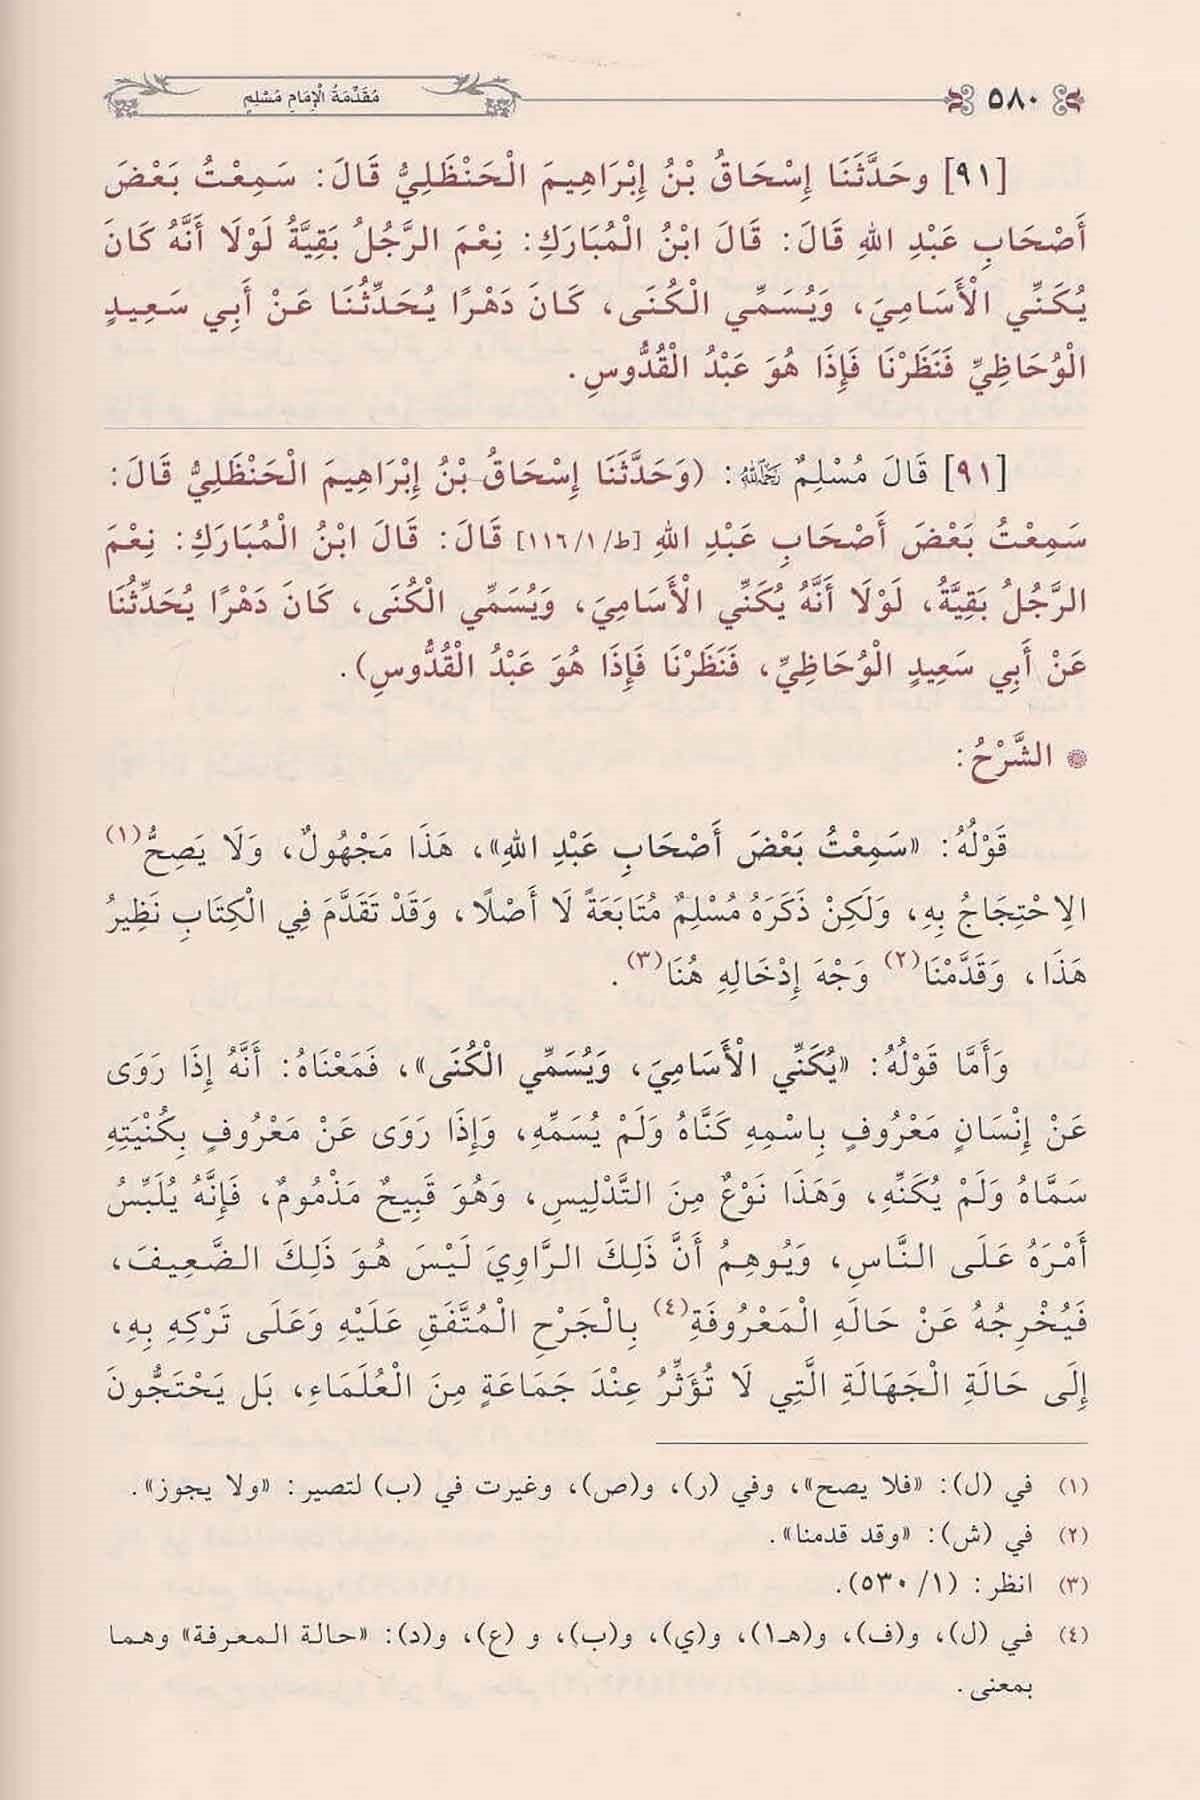 ٥٨٠
مُقَدِّمَةُ الْإِمَامِ مُسْلِمٍ
[٩١] وحَدَّثَنَا إِسْحَاقُ بْنُ إِبْرَاهِيمَ الْحَنْظَلِيُّ قَالَ: سَمِعْتُ بَعْضَ
أَصْحَابِ عَبْدِ اللهِ قَالَ: قَالَ ابْنُ الْمُبَارَكِ: نِعْمَ الرَّجُلُ بَقِيَّةُ لَوْلَا أَنَّهُ كَانَ
يُكَنِّي الْأَسَامِيَ، وَيُسَمِّي الْكُنَى، كَانَ دَهْرًا يُحَدِّثُنَا عَنْ أَبِي سَعِيدٍ
الْوُحَاظِيِّ فَنَظَرْنَا فَإِذَا هُوَ عَبْدُ الْقُدُّوسِ.
[٩١] قَالَ مُسْلِمٌ رَحِمَهُ اللهُ: (وَحَدَّثَنَا إِسْحَاقُ بْنُ إِبْرَاهِيمَ الْحَنْظَلِيُّ قَالَ:
سَمِعْتُ بَعْضَ أَصْحَابِ عَبْدِ اللهِ [ط/١/١١٦] قَالَ: قَالَ ابْنُ الْمُبَارَكِ: نِعْمَ
الرَّجُلُ بَقِيَّةُ، لَوْلَا أَنَّهُ يُكَنِّي الْأَسَامِيَ، وَيُسَمِّي الْكُنَى، كَانَ دَهْرًا يُحَدِّثُنَا
عَنْ أَبِي سَعِيدٍ الْوُحَاظِيِّ، فَنَظَرْنَا فَإِذَا هُوَ عَبْدُ الْقُدُّوسِ).
الشَّرْحُ:
قَوْلُهُ: «سَمِعْتُ بَعْضَ أَصْحَابِ عَبْدِ اللهِ»، هَذَا مَجْهُولٌ، وَلَا يَصِحُّ(١)
الِاحْتِجَاجُ بِهِ، وَلَكِنْ ذَكَرَهُ مُسْلِمٌ مُتَابَعَةً لَا أَصْلًا، وَقَدْ تَقَدَّمَ فِي الْكِتَابِ نَظِيرُ
هَذَا، وَقَدَّمْنَا(٢) وَجْهَ إِدْخَالِهِ هُنَا(٣).
وَأَمَّا قَوْلُهُ: «يُكَنِّي الْأَسَامِيَ، وَيُسَمِّي الْكُنَى»، فَمَعْنَاهُ: أَنَّهُ إِذَا رَوَى
عَنْ إِنْسَانٍ مَعْرُوفٍ بِاسْمِهِ كَنَّاهُ وَلَمْ يُسَمِّهِ، وَإِذَا رَوَى عَنْ مَعْرُوفٍ بِكُنْيَتِهِ
سَمَّاهُ وَلَمْ يُكَنِّهِ، وَهَذَا نَوْعٌ مِنَ التَّدْلِيسِ، وَهُوَ قَبِيحٌ مَذْمُومٌ، فَإِنَّهُ يُلَبِّسُ
أَمْرَهُ عَلَى النَّاسِ، وَيُوهِمُ أَنَّ ذَلِكَ الرَّاوِيَ لَيْسَ هُوَ ذَلِكَ الضَّعِيفَ،
فَيُخْرِجُهُ عَنْ حَالِهِ الْمَعْرُوفَةِ(٤) بِالْجَرْحِ الْمُتَّفَقِ عَلَيْهِ وَعَلَى تَرْكِهِ بِهِ،
إِلَى حَالَةِ الْجَهَالَةِ الَّتِي لَا تُؤَثِّرُ عِنْدَ جَمَاعَةٍ مِنَ الْعُلَمَاءِ، بَل يَحْتَجُّونَ
(١) في (ل): «فلا يصح»، وفي (ر)، و(ص)، وغيرت في (ب) لتصير: «ولا يجوز».
(٢) في (ش): «وقد قدمنا».
(٣) انظر: (١/ ٥٣٠).
(٤) في (ل)، و(ف)، و(هـ١)، و(ي)، و(ب)، و (ع)، و(د): «حالة المعرفة» وهما
بمعنى.